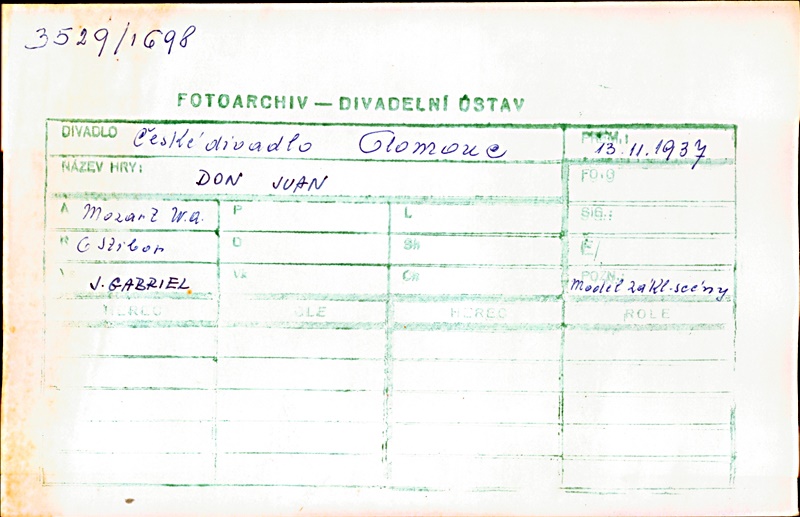 3529/1698
FOTOARCHIV — DIVADELNÍ ÚSTAV
DIVADLO České divadlo Olomouc PREM.: 13.11.1937
NÁZEV HRY: DON JUAN FOTO
A Mozart W.A. P L SIG.:
R O Stibor D Sb É/
V J. GABRIEL Vk Cn POZN.: Model zákl. scény
HEREC OLE HEREC ROLE